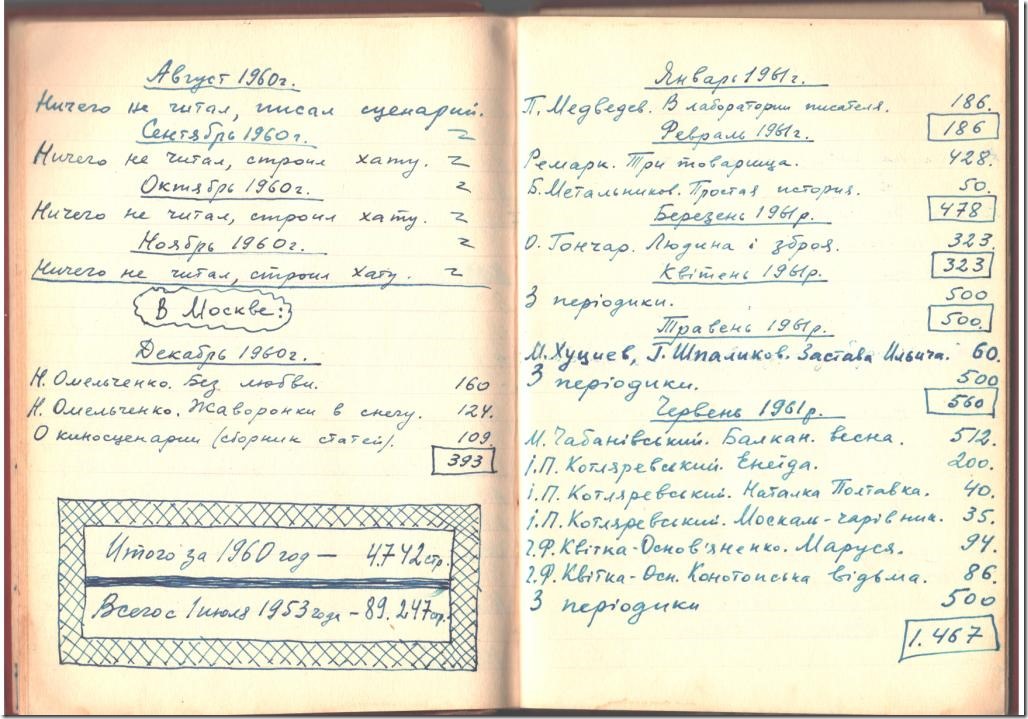 Август 1960г.
Ничего не читал, писал сценарий.
Сентябрь 1960г.
Ничего не читал, строил хату.
Октябрь 1960г.
Ничего не читал, строил хату.
Ноябрь 1960г.
Ничего не читал, строил хату.
В Москве:
Декабрь 1960г.
Н. Омельченко. Без любви. 160
Н. Омельченко. Жаворонки в снегу. 124.
О киносценарии (сборник статей). 109.
393
Итого за 1960 год — 4742 стр.
Всего с 1 июля 1953 года - 89.247 стр.
Январь 1961г.
П. Медведев. В лаборатории писателя. 186.
186
Февраль 1961г.
Ремарк. Три товарища. 428.
Б. Метальников. Простая история. 50.
478
Березень 1961р.
О. Гончар. Людина і зброя. 323.
323
Квітень 1961р.
З періодики. 500
500.
Травень 1961р.
М. Хуциев, Г. Шпаликов. Застава Ильича. 60.
З періодики. 500
560
Червень 1961р.
М. Чабанівський. Балкан. весна. 512.
І.П. Котляревський. Енеїда. 200.
І.П. Котляревський. Наталка Полтавка. 40.
І.П. Котляревський. Москаль-чарівник. 35.
Г.Ф. Квітка-Основ'яненко. Маруся. 94.
Г.Ф. Квітка-Осн. Конотопська відьма. 86.
З періодики 500
1.467